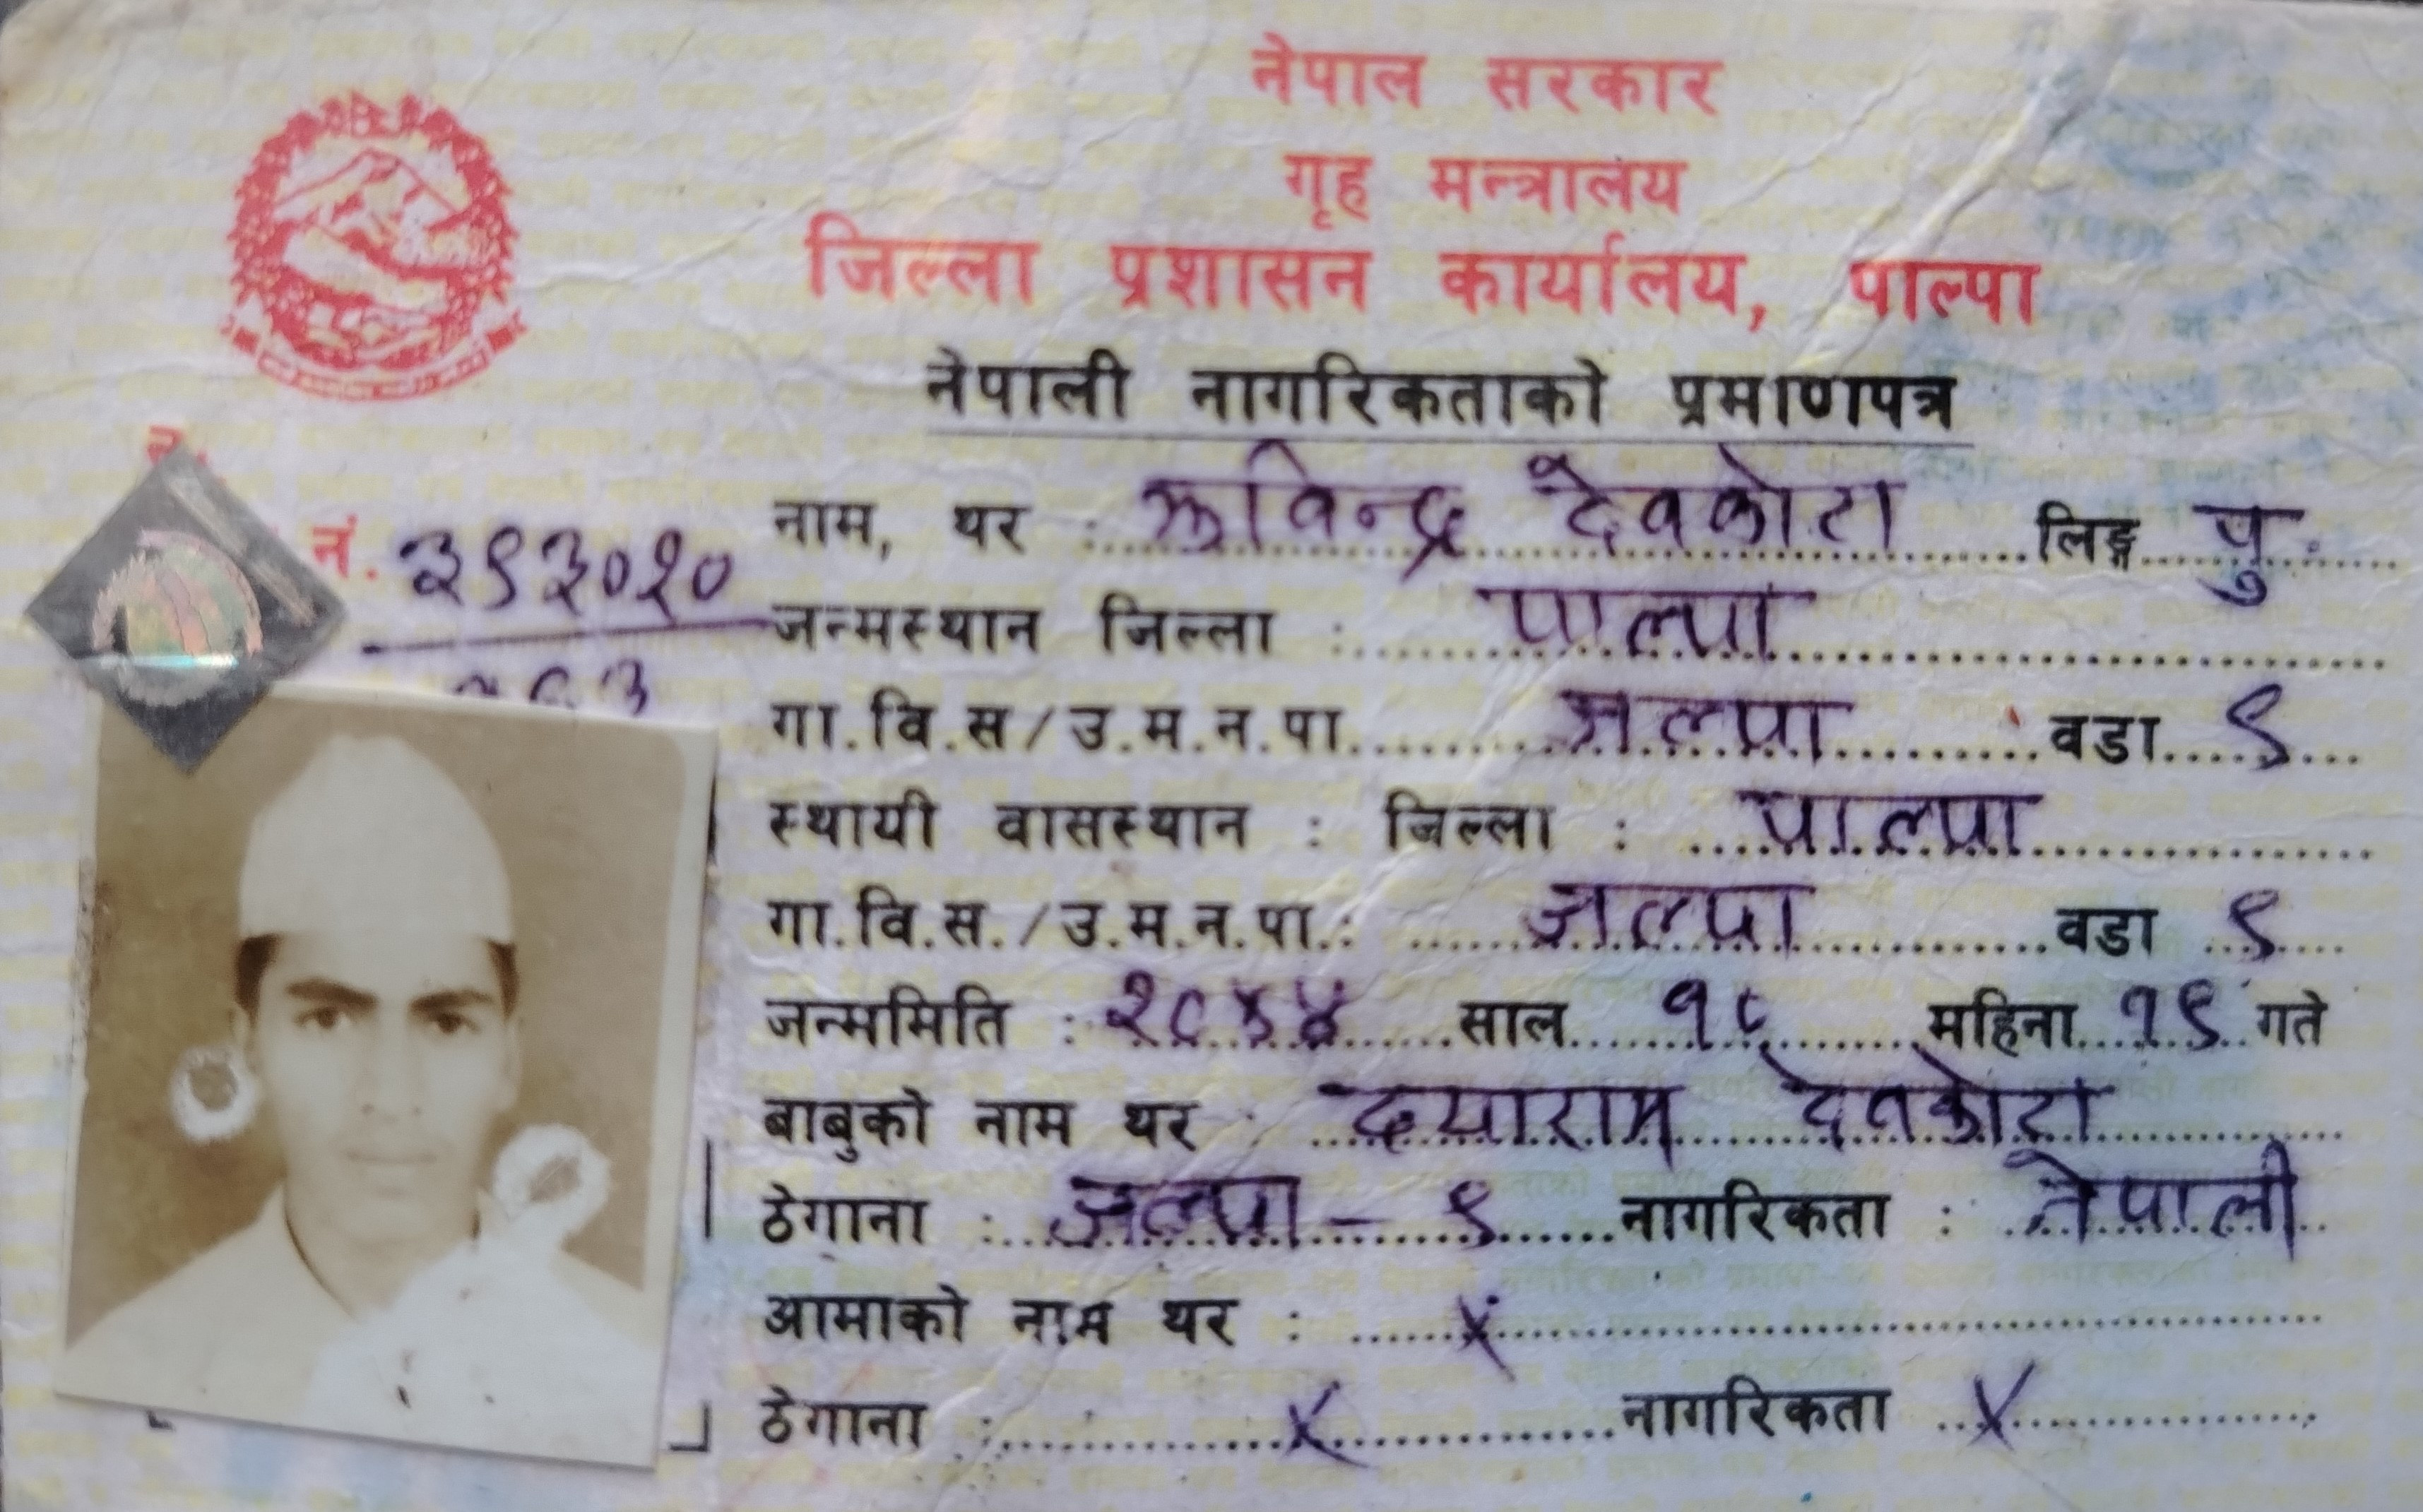 नेपाल सरकार
गृह मन्त्रालय
जिल्ला प्रशासन कार्यालय, पाल्पा
नेपाली नागरिकताको प्रमाणपत्र
नं. ३९३०१०
नाम, थर : देवकोटा लिङ्ग पु.
जन्मस्थान जिल्ला : पाल्पा
गा.वि.स/उ.म.न.पा. जल्पा वडा ९
स्थायी वासस्थान : जिल्ला : पाल्पा
गा.वि.स./उ.म.न.पा.: जल्पा वडा ९
जन्ममिति : साल १८ महिना १९ गते
बाबुको नाम थर : दयाराम देवकोटा
ठेगाना : जल्पा - ९ नागरिकता : नेपाली
आमाको नाम थर : x
ठेगाना : x नागरिकता x